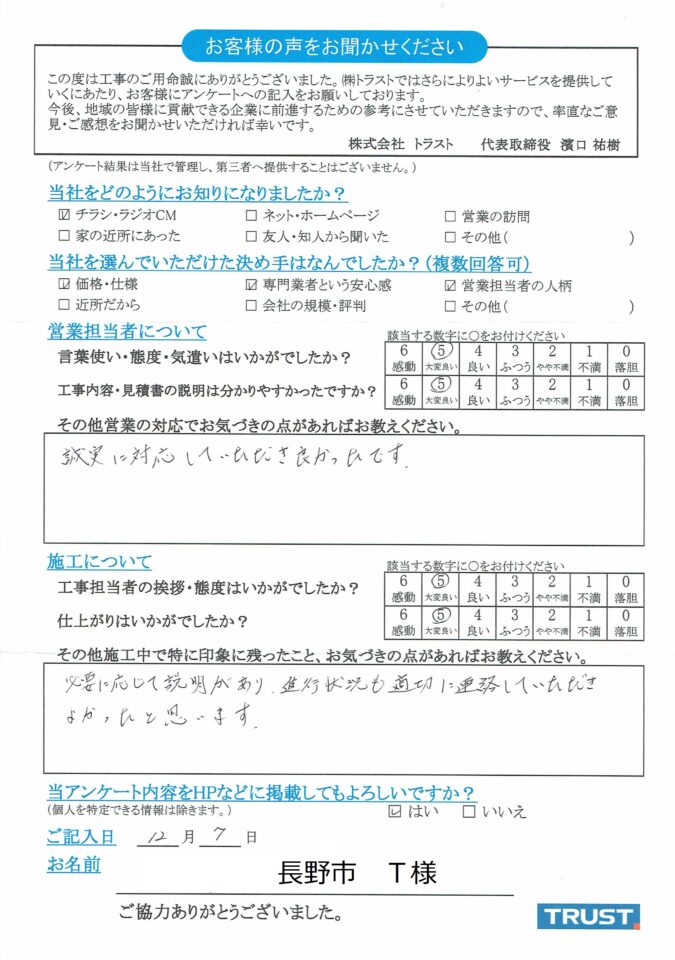 お客様の声をお聞かせください
この度は工事のご用命誠にありがとうございました。㈱トラストではさらによりよいサービスを提供して
いくにあたり、お客様にアンケートへの記入をお願いしております。
今後、地域の皆様に貢献できる企業に前進するための参考にさせていただきますので、率直なご意
見・ご感想をお聞かせいただければ幸いです。
株式会社 トラスト 代表取締役 濱口 祐樹
(アンケート結果は当社で管理し、第三者へ提供することはございません。)
当社をどのようにお知りになりましたか？
☑ チラシ・ラジオCM □ ネット・ホームページ □ 営業の訪問
□ 家の近所にあった □ 友人・知人から聞いた □ その他( )
当社を選んでいただけた決め手はなんでしたか？(複数回答可)
☑ 価格・仕様 ☑ 専門業者という安心感 ☑ 営業担当者の人柄
□ 近所だから □ 会社の規模・評判 □ その他( )
営業担当者について
該当する数字に○をお付けください
言葉使い・態度・気遣いはいかがでしたか？
6 ⑤ 4 3 2 1 0
感動 大変良い 良い ふつう やや不満 不満 落胆
工事内容・見積書の説明は分かりやすかったですか？
6 ⑤ 4 3 2 1 0
感動 大変良い 良い ふつう やや不満 不満 落胆
その他営業の対応でお気づきの点があればお教えください。
誠実に対応していただき良かったです.
施工について
該当する数字に○をお付けください
工事担当者の挨拶・態度はいかがでしたか？
6 ⑤ 4 3 2 1 0
感動 大変良い 良い ふつう やや不満 不満 落胆
仕上がりはいかがでしたか？
6 ⑤ 4 3 2 1 0
感動 大変良い 良い ふつう やや不満 不満 落胆
その他施工中で特に印象に残ったこと、お気づきの点があればお教えください。
必要に応じて説明があり、進行状況も適切に連絡していただき
よかったと思います.
当アンケート内容をHPなどに掲載してもよろしいですか？
(個人を特定できる情報は除きます。)
☑ はい □ いいえ
ご記入日 12 月 7 日
お名前 長野市 T様
ご協力ありがとうございました。
TRUST.